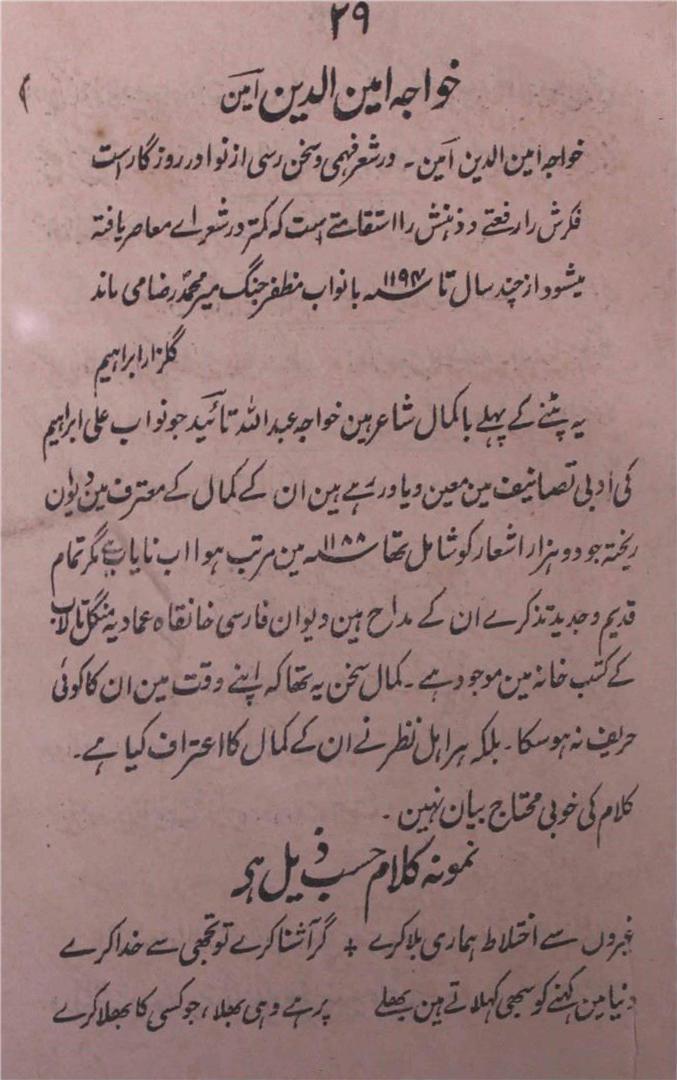 ۲۹
خواجہ امین الدین امین
خواجہ امین الدین امین ۔ در شعر فہمی و سخن رسی از نوادر روزگار است
فکرش را رفعتے و ذہنش را استقامتے است کہ کمتر در شعراے معاصر یافتہ
میشود از چند سال تا ۱۱۹۴ھ با نواب مظفر جنگ میر محمد رضا می ماند
گلزار ابراہیم
یہ پٹنے کے پہلے باکمال شاعر ہین خواجہ عبد اللہ تائید جو نواب علی ابراہیم
کی ادبی تصانیف مین معین و یاور رہے ہین ان کے کمال کے معترف مین دیوان
ریختہ جو دو ہزار اشعار کو شامل تھا ۱۱۸۸ھ مین مرتب ہوا اب نایاب ہے مگر تمام
قدیم و جدید تذکرے ان کے مداح ہین دیوان فارسی خانقاہ عمادیہ منگل تالاب
کے کتب خانہ مین موجود ہے ۔ کمال سخن یہ تھا کہ اپنے وقت مین ان کا کوئی
حریف نہ ہو سکا ۔ بلکہ ہر اہل نظر نے ان کے کمال کا اعتراف کیا ہے ۔
کلام کی خوبی محتاج بیان نہین ۔
نمونہ کلام حسب ذیل ہی
غیروں سے اختلاط ہماری بلا کرے ؞ گر آشنا کرے تو تجھی سے خدا کرے
دنیا مین کہنے کو سبھی کہلاتے ہین بھلے پر ہے وہی بھلا، جو کسی کا بھلا کرے